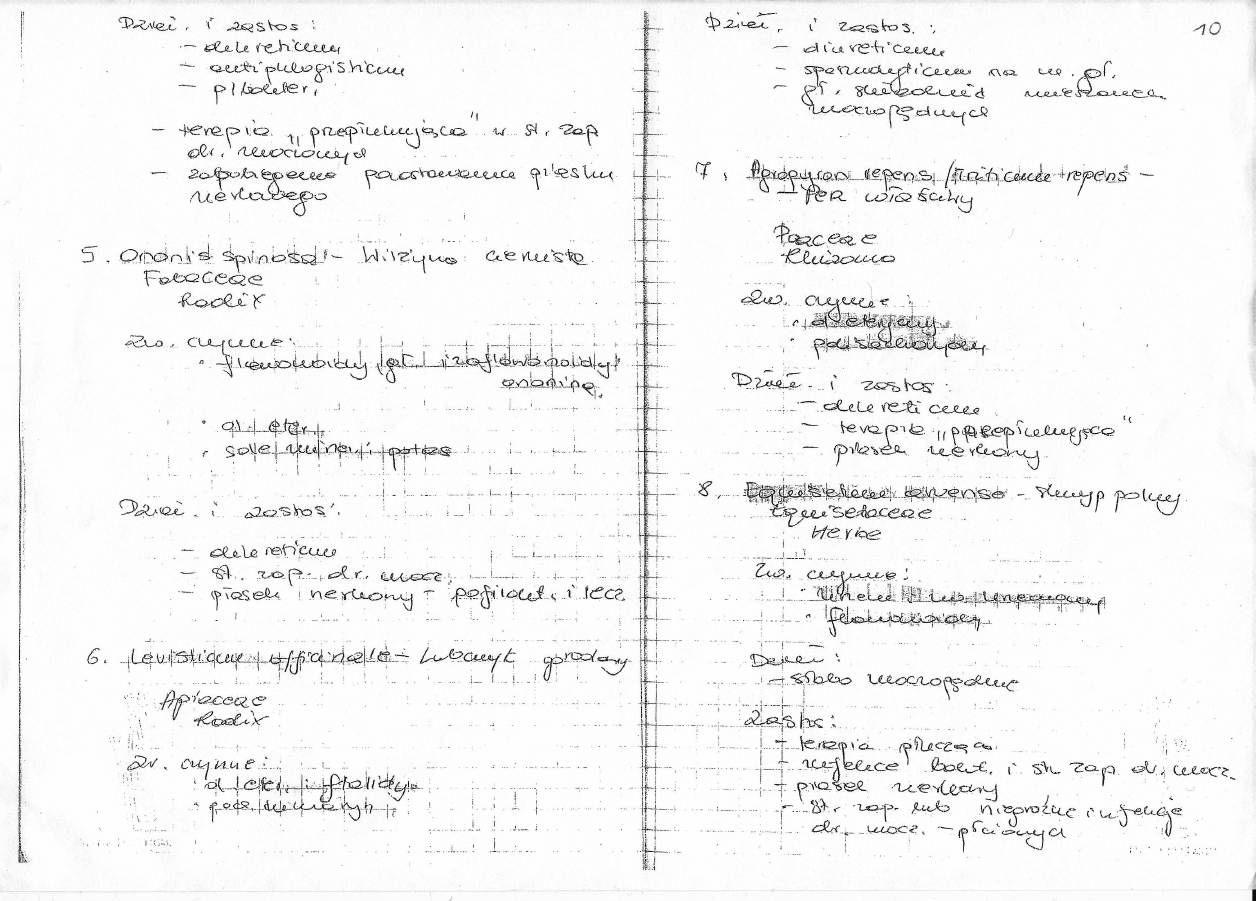 Dział. i zastos:
- diureticum
- antiphlogisticum
- p/bakter.
- terapia „przepłukująca" w st. zap
dr. moczowych
- zapobieganie powstawaniu piasku
nerkowego
5. Ononis spinosa - Wilżyna ciernista
Fabaceae
Radix
Zw. czynne:
• flawonoidy, gł. izoflawonoidy
ononina
• ol. eter.
• sole miner. i potas
Dział. i zastos:
- diureticum
- st. zap. dr. mocz.
- piasek nerkowy - profilakt. i lecz.
6. Levisticum officinale - Lubczyk ogrodowy
Apiaceae
Radix
Zw. czynne:
• ol. eter. i ftalidy
Dział. i zastos.:
- diureticum
- spasmolyticum na m. gł.
- gł. składnik mieszanek
moczopędnych
10
7. Agropyron repens / Triticum repens -
- Perz właściwy
Poaceae
Rhizoma
Zw. czynne:
•
•
Dział. i zastos:
- diureticum
- terapia „przepłukująca"
- piasek nerkowy
8. Equisetum arvense - skrzyp polny
Equisetaceae
Herba
Zw. czynne:
•
• flawonoidy
Dział:
- słabo moczopędne
Zastos:
- terapia płucząca
- infekcje bakt. i st. zap. dr. mocz.
- piasek nerkowy
- st. zap. lub niegroźne infekcje
dr. mocz. - płciowych